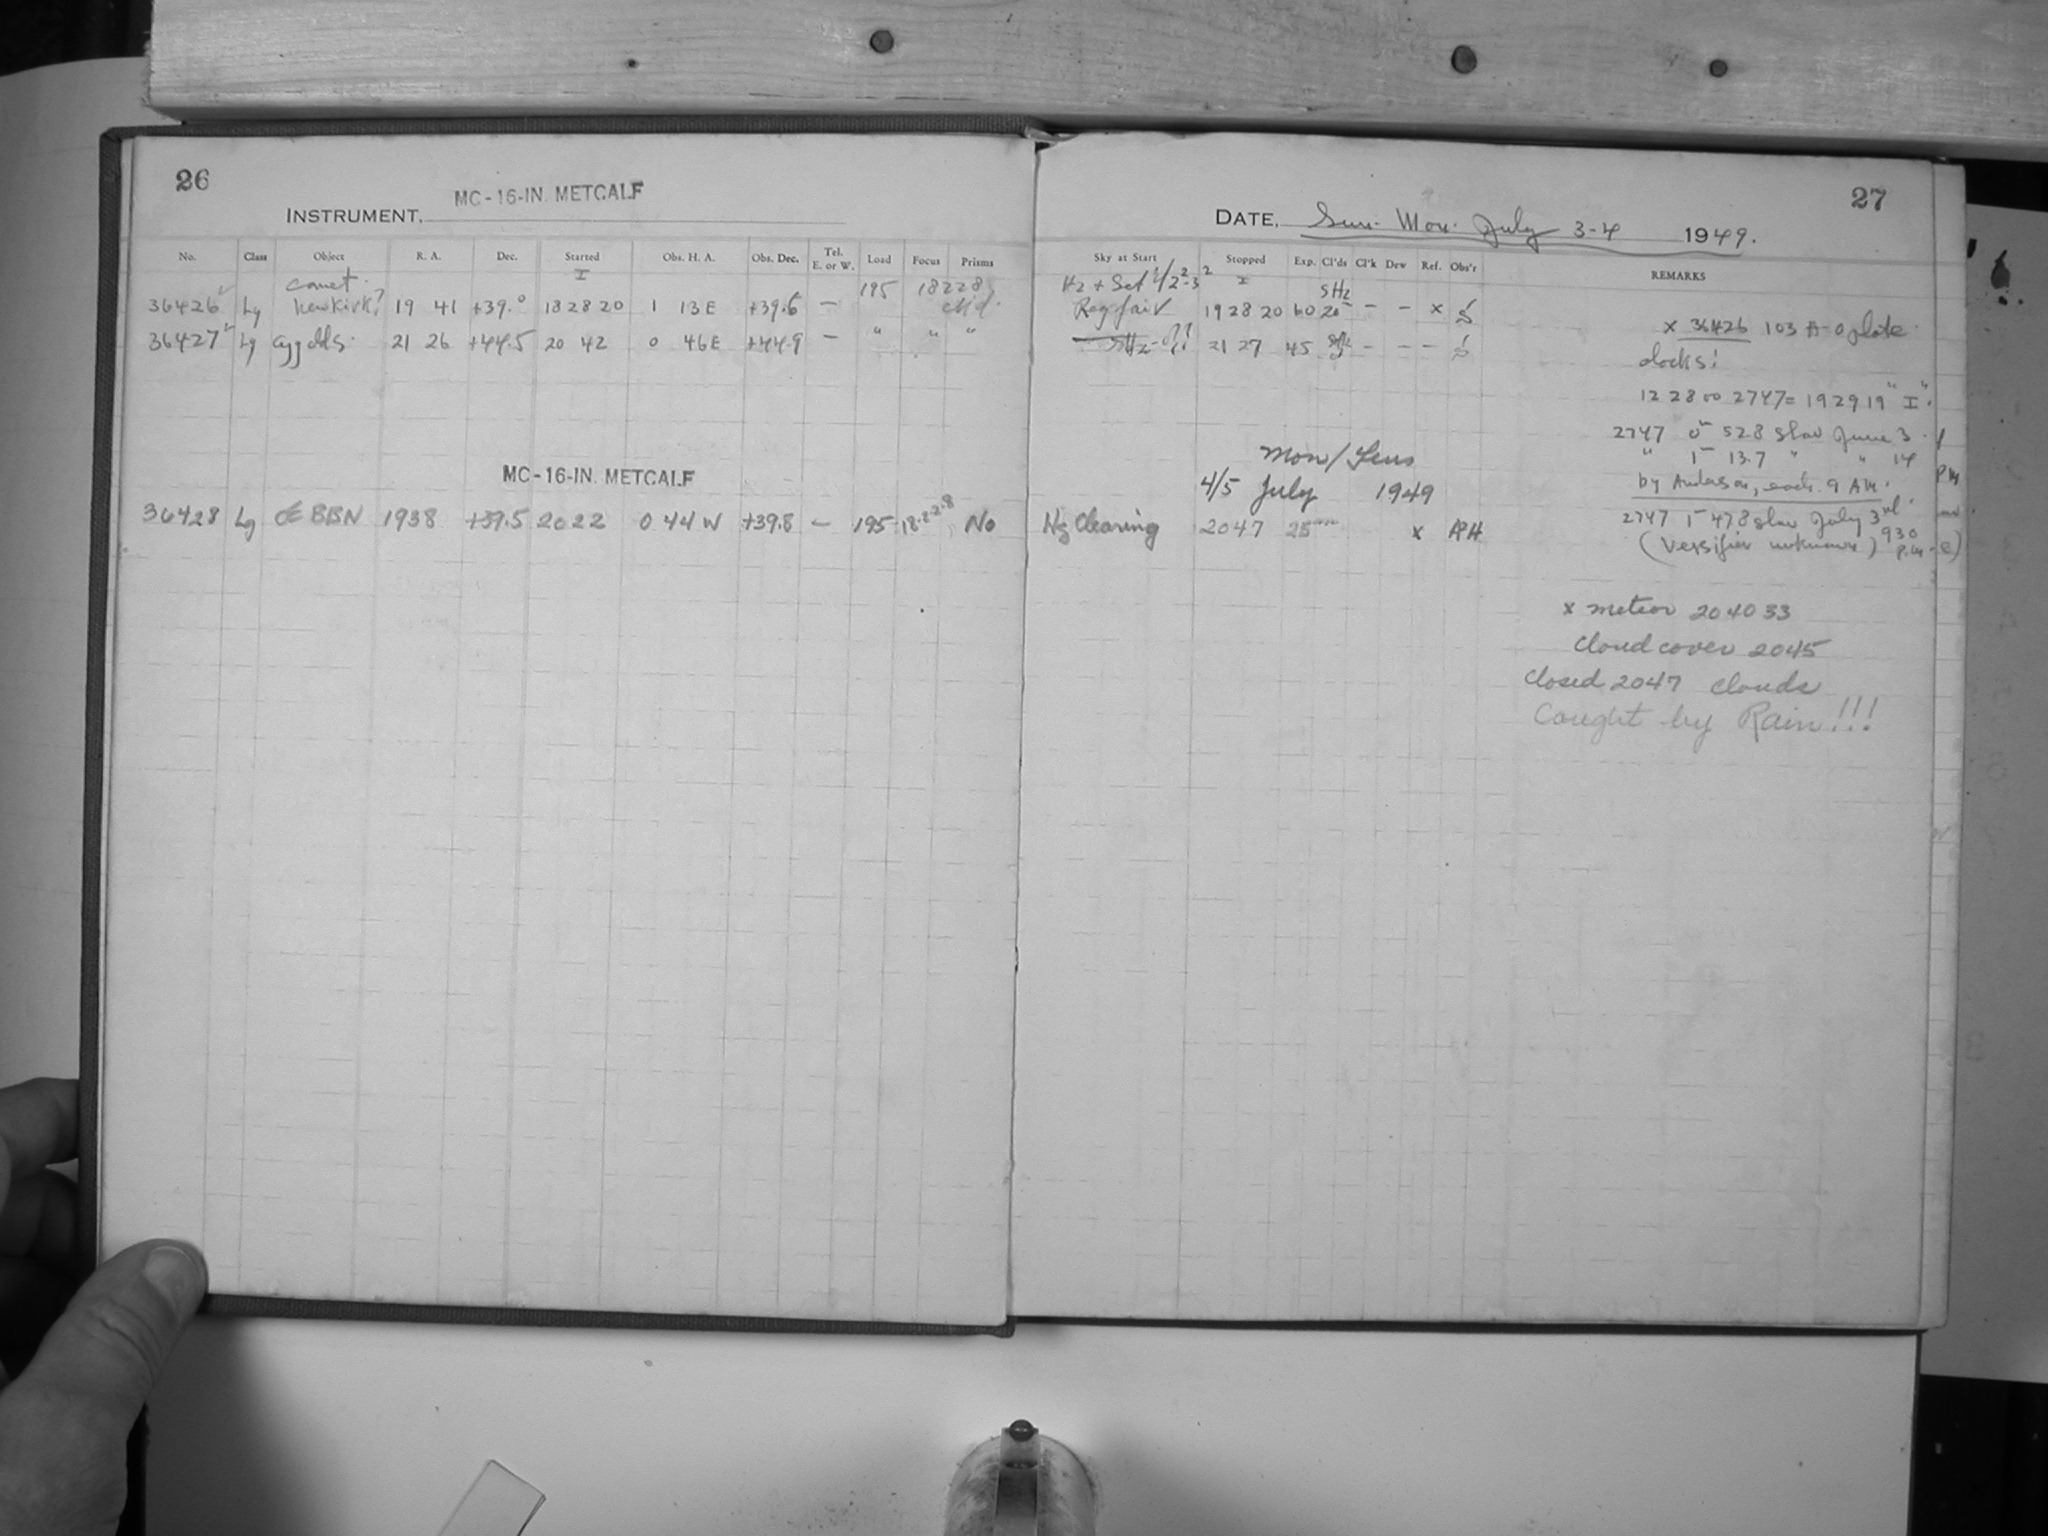 26
MC-16-IN. METCALF
INSTRUMENT,
No. Class Object R. A. Dec. Started Obs. H. A. Obs. Dec. Tel. E. or W. Load Focus Prisms
comet I 195 18228
36426 Lg Newkirk? 19 41 +39.0 18 28 20 1 13E +39.6 —
36427 Lg 21 26 +44.5 20 42 0 46E +44.9 — " " "
MC-16-IN. METCALF
36428 Lg 1938 +39.5 2022 0 44 W +39.8 — 195 18.22.8 No
27
DATE, Sun. Mon. July 3-4 1949.
Sky at Start Stopped Exp. Cl'ds Cl'k Dew Ref. Obs'r REMARKS
Hz + Set I SHz
fair 19 28 20 60 20 — — x
SHz 21 27 45 — — —
x 36426 103 A-O plate
clocks:
12 28 00 2747= 19 29 19 "I".
2747 0m 52.8 slow June 3
" 1m 13.7 " " 14
by Anderson, each 9 AM.
2747 1m 47.8 slow July 3rd
(Versifier unknown) 930 P.M.
Mon/Tues
4/5 July 1949
Hz Clearing 2047 25m x APH
x meteor 204033
Cloud cover 2045
Closed 2047 clouds
Caught by Rain!!!